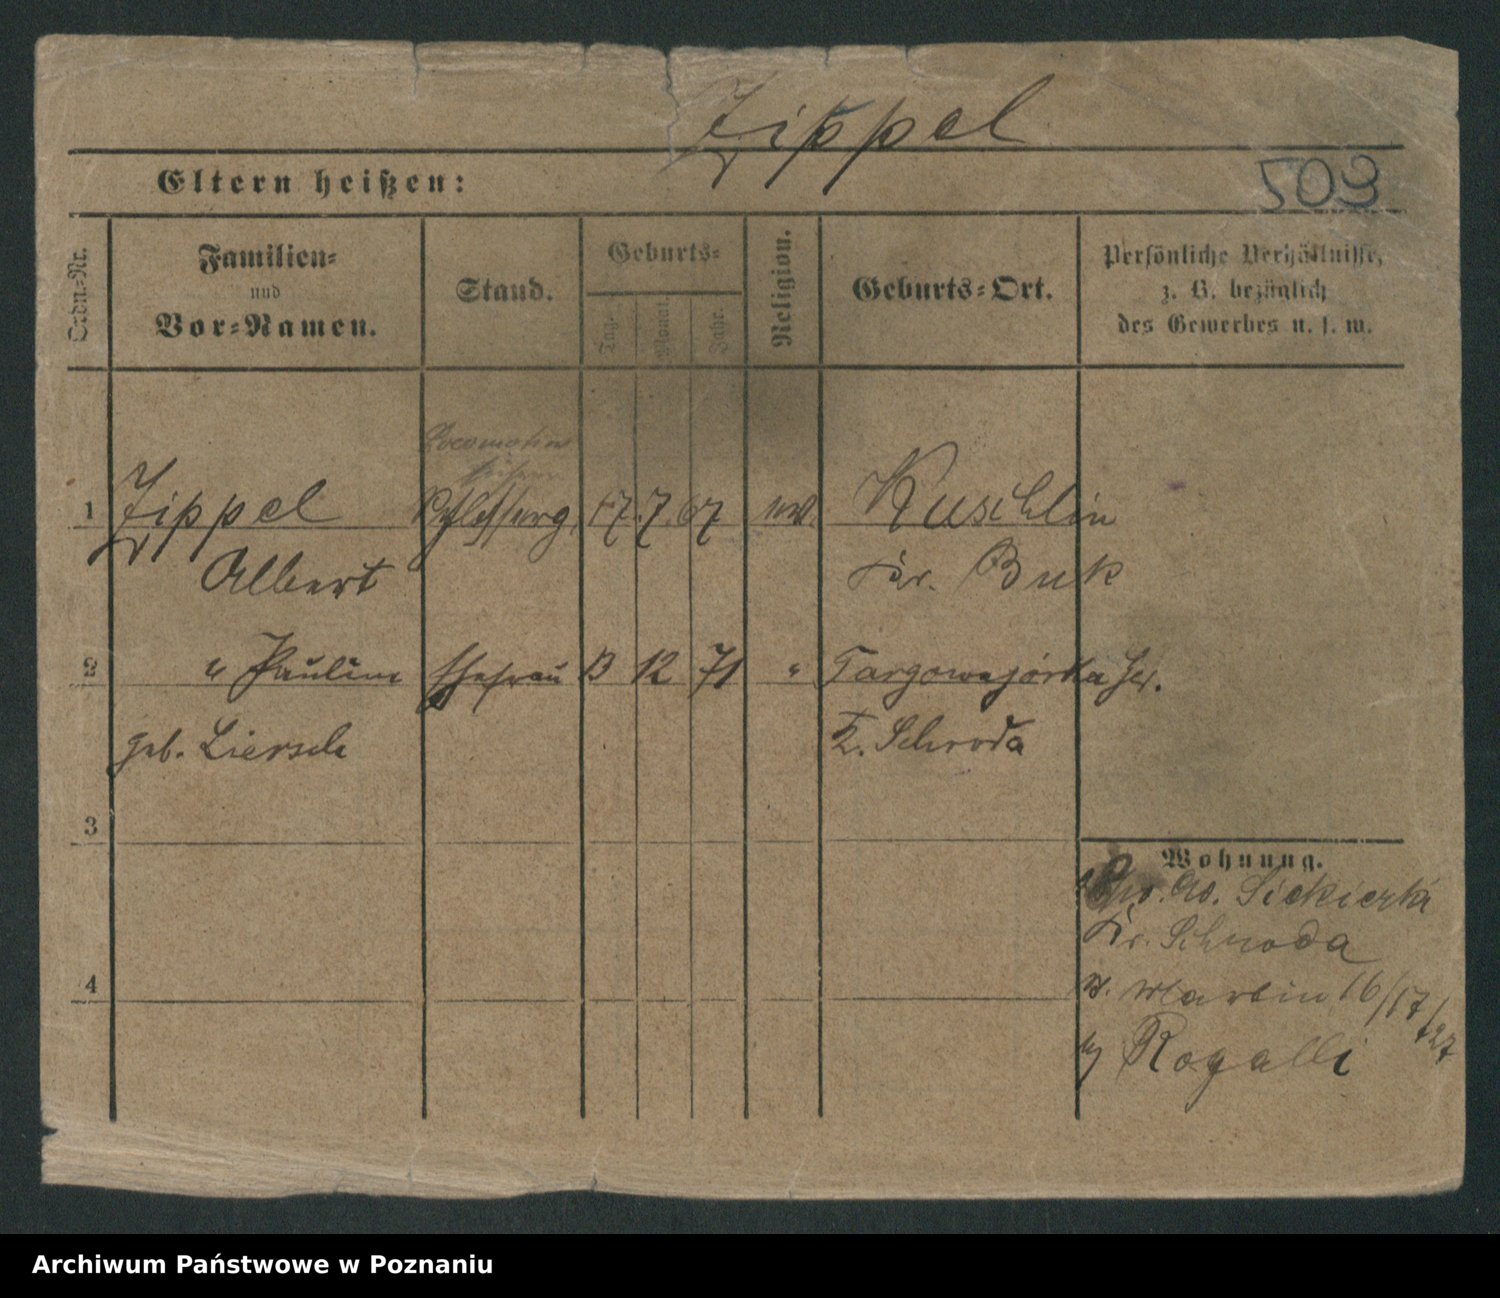 Zippel
Eltern heißen:
503
Orden.-Nr.
Familien-
und
Vor-Namen.
Stand.
Geburts-
Tag.
Monat.
Jahr.
Religion.
Geburts-Ort.
Persönliche Verhältnisse,
z. B. bezüglich
des Gewerbes u. s. w.
Locomotiv
1 Zippel 17. 7. 67 Kuschlin
Albert Kr. Buk
2 " Pauline Ehefrau 13 12 71 " Targowagórka
geb. Liersch K. Schroda
3
Wohnung.
Siekierki
Kr. Schroda
4
Martin 16/17/
Rogalli
Archiwum Państwowe w Poznaniu